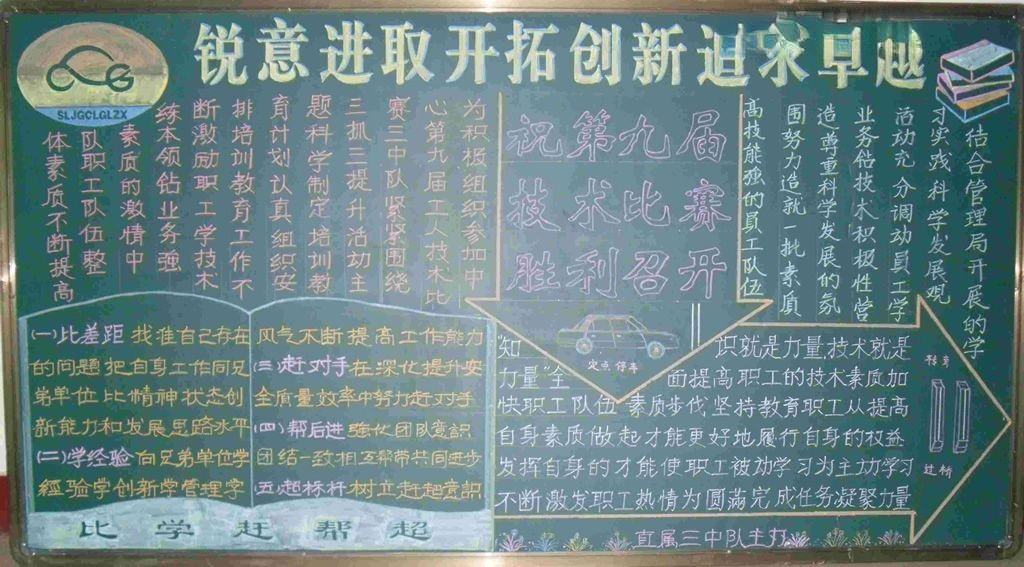 锐意进取开拓创新追求卓越
SLJGCLGLZX
为积极组织参加中
心第九届工人技术比
赛三中队紧紧围绕
三抓三提升活动主
题科学制定培训教
育计划认真组织安
排培训教育工作不
断激励职工学技术
练本领钻业务强
素质的激情中
队职工队伍整
体素质不断提高
祝第九届
技术比赛
胜利召开
结合管理局开展的学
习实践科学发展观
活动充分调动员工学
业务钻技术积极性营
造尊重科学发展的氛
围努力造就一批素质
高技能强的員工队伍
(一)比差距 找准自己存在
的问题把自身工作同兄
弟单位比精神状态创
新能力和发展思路水平
(二)学经验 向兄弟单位学
經验学创新学管理学
风气不断提高工作能力
(三)赶对手在深化提升安
全质量效率中努力赶对手
(四)帮后进 强化团队意識
团结一致相互帮带共同进步
(五)超标杆 树立赶超意識
比学赶帮超
定点停车
"知识就是力量,技术就是
力量"全面提高职工的技术素质加
快职工队伍素质步伐坚持教育职工从提高
自身素质做起才能更好地履行自身的权益
发挥自身的才能使职工被动学习为主动学习
不断激发职工热情为圆滿完成任务凝聚力量
移库
过桥
直属三中队主办